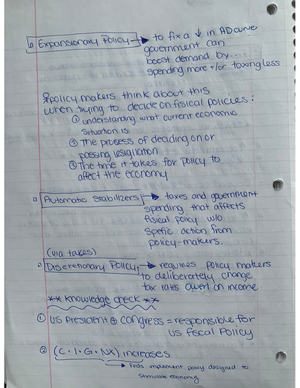 Expansionary Policy → to fix a ↓ in AD curve
government can
boost demand by
spending more +/or taxing less
policy makers think about this
when trying to decide on fisical policies:
① understanding what current economic
situation is
② The process of deciding on or
passing legislation
③ The time it takes for policy to
affect the economy
Automatic Stabilizers → taxes and government
spending that affects
fisical policy w/o
spefic action from
policy-makers.
(via taxes)
Discretionary Policy → requires policy makers
to deliberately change
tax rates on income
** Knowledge check **
① US President + Congress = responsible for
US fiscal Policy
② (C + I + G + NX) increases
→ Feds implement policy designed to
stimulate economy